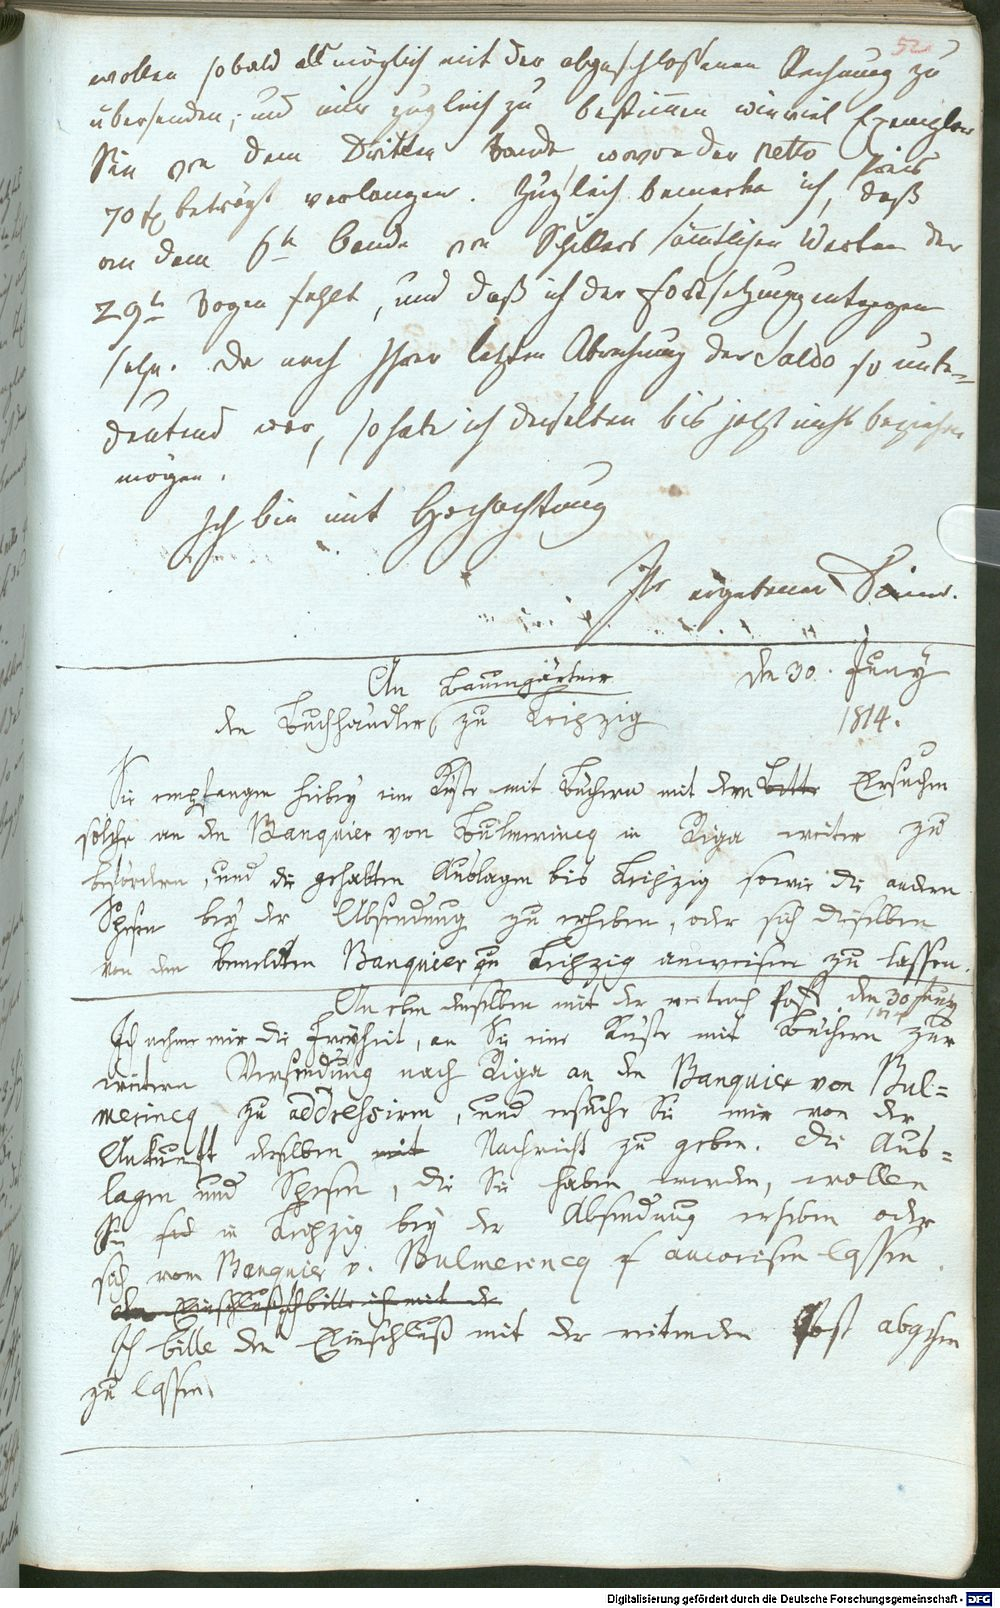 52
wollen sobald als möglich mit der abgeschlossenen Rechnung zu
übersenden, und mir zugleich zu bestimmen wieviel Exemplar
Sie von dem Dritten Bande, wovon der netto Preis
70 beträgt verlangen. Zugleich bemerke ich, daß
an dem 6n bande von Schillers sämtlichen Werken der
29te Bogen fehlt, und daß ich der Fortsetzung entgegen
sehe. Da nach Ihrer letzten Abrechnung der Saldo so unbe-
deutend war, so habe ich denselben bis jetzt nicht beziehen
mögen.
Ich bin mit Hochachtung
Ihr ergebener Diener.
An Baumgärtner den 30. Juny
den Buchhändler zu Leipzig 1814.
Sie empfangen hiebey eine Kiste mit Büchern mit dem Bitte Ersuchen
solche an den Banquier von Bulmerincq in Riga weiter zu
befördern, und die gehabten Auslagen bis Leipzig sowie die andern
Spesen bey der Absendung zu erheben, oder sich dieselben
von dem bemeldten Banquier zu Leipzig anweisen zu lassen.
An eben denselben mit der reitenden Post. den 30 Juny
1814
Ich nehme mir die Freyheit, an Sie eine Kiste mit Büchern zur
weitern Versendung nach Riga an den Banquier von Bul=
merincq zu addressiren, und ersuche Sie mir von der
Ankunft derselben mit Nachricht zu geben. Die Aus=
lagen und Spesen, die Sie haben werden, wollen
Sie in Leipzig bey der Absendung erheben oder
sich vom Banquier v. Bulmerincq anweisen lassen.
den Einschluß bitte ich mit der
Ich bitte den Einschluß mit der reitenden Post abgehen
zu lassen.
Digitalisierung gefördert durch die Deutsche Forschungsgemeinschaft - DFG